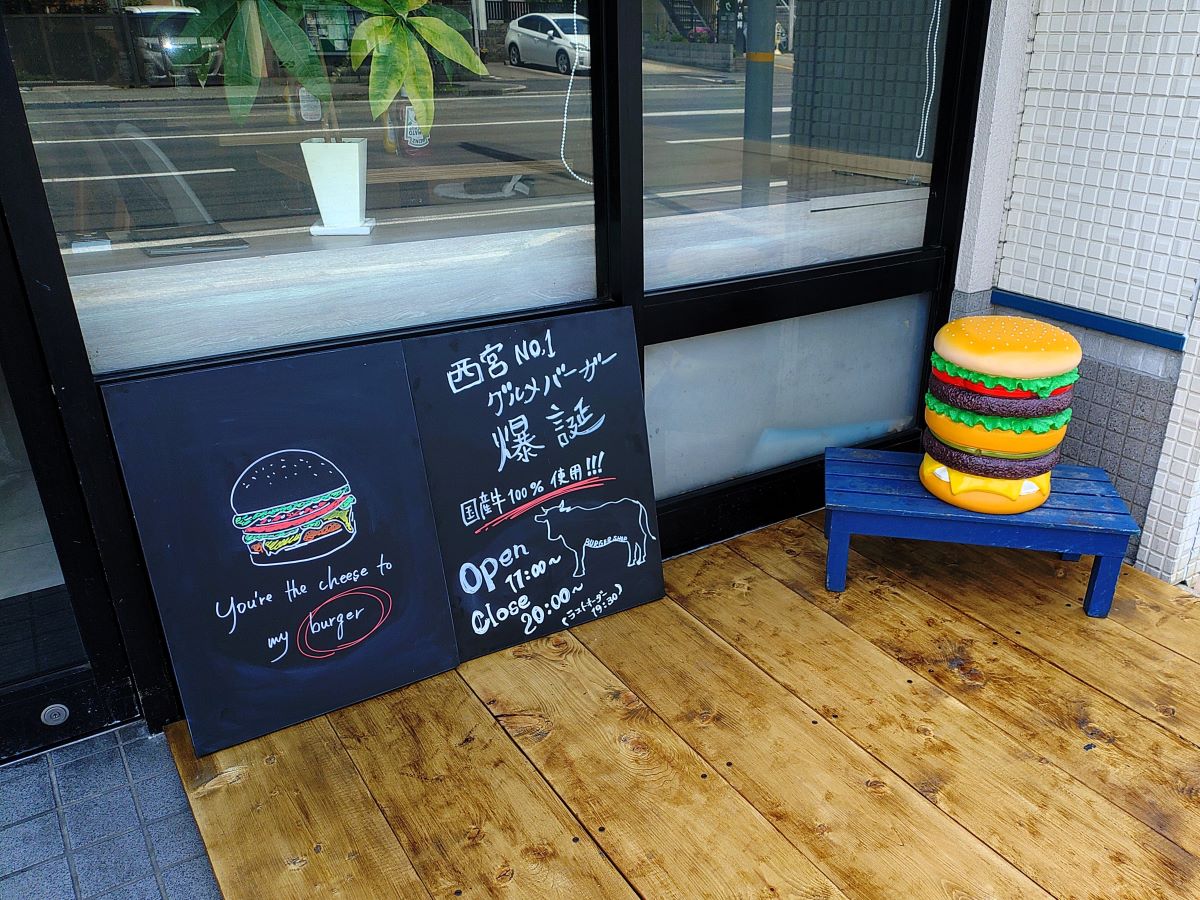 You're the cheese to
my burger
西宮 NO.1
グルメバーガー
爆誕
国産牛100%使用!!!
BURGER SHOP
Open
17:00~
Close
20:00~
(ラストオーダー
19:30)
HEINZ